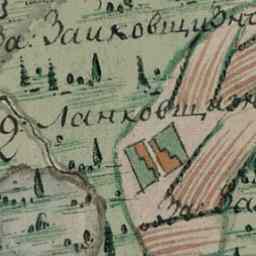 За: Заиковщизна
9: Ланковщизн
За: За